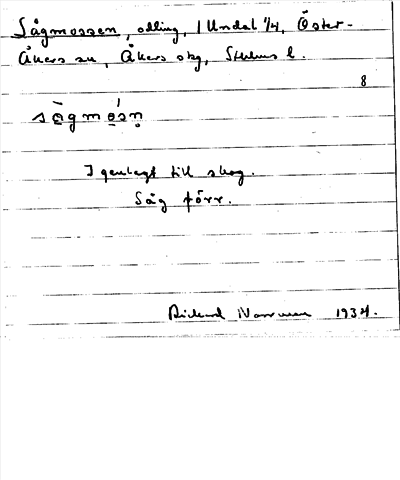 Sågmossen, odling, 1 Undal 1/4, Öster-
Åkers sn, Åkers skg, Sthlms l.
8
sàgmósn̥
Igenlagt till skog.
Såg förr.
Rickard 1934.